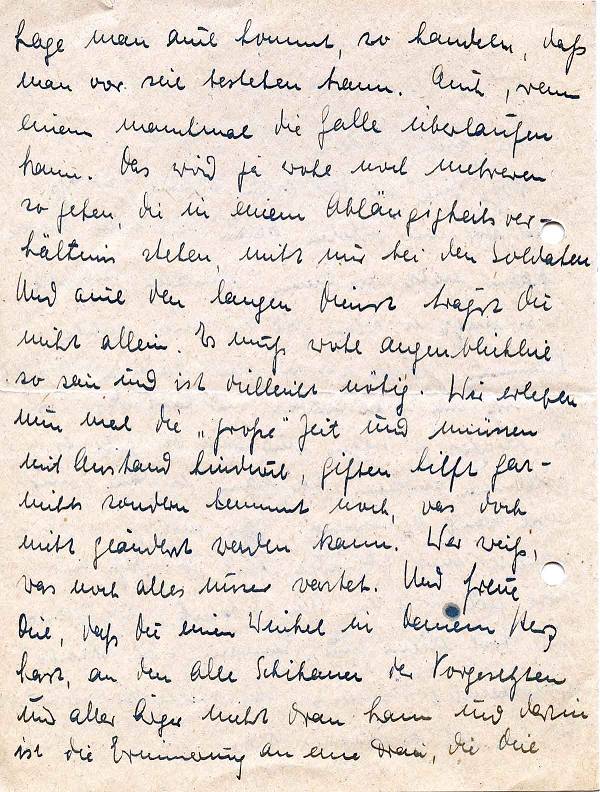 Lage man auch kommt, so handeln, daß
man vor sich bestehen kann. Auch, wenn
einem manchmal die Galle überlaufen
kann. Das wird ja wohl noch mehreren
so gehen, die in einem Abhängigkeitsver-
hältnis stehen, nicht nur bei den Soldaten
Und auch den langen Dienst trägst Du
nicht allein. Es muß wohl augenblicklich
so sein und ist vielleicht nötig. Wir erleben
nun mal die „große" Zeit und müssen
mit Anstand hindurch, giften hilft gar-
nichts sondern hemmt noch, was doch
nicht geändert werden kann. Wer weiß,
was noch alles unser wartet. Und freue
Dich, daß Du einen Winkel in Deinem Herz
hast, an den alle Schikanen der Vorgesetzten
und aller Ärger nicht dran kann und darin
ist die Erinnerung an eine Frau, die Dich